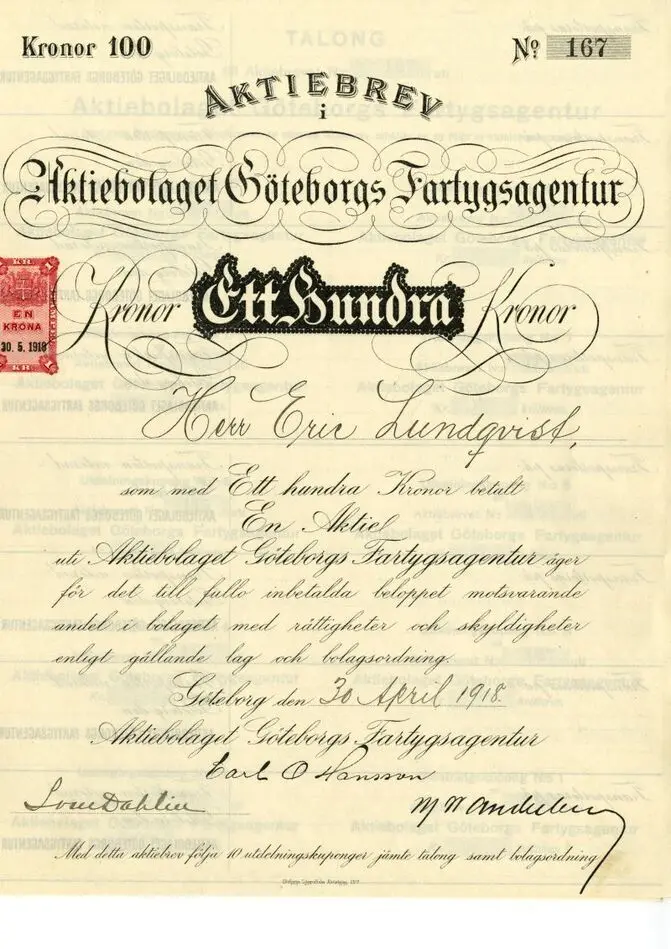 Kronor 100
No 167
AKTIEBREV
i
Aktiebolaget Göteborgs Fartygsagentur
Kronor Ett Hundra Kronor
KR KR
EN
KRONA
30. 5. 1918
KR
Herr Eric Lundqvist,
som med Ett hundra Kronor betalt
En Aktie
uti Aktiebolaget Göteborgs Fartygsagentur äger
för det till fullo inbetalda beloppet motsvarande
andel i bolaget med rättigheter och skyldigheter
enligt gällande lag och bolagsordning.
Göteborg den 30 April 1918.
Aktiebolaget Göteborgs Fartygsagentur
Carl O Hansson
Dahlin
Med detta aktiebrev följa 10 utdelningskuponger jämte talong samt bolagsordning